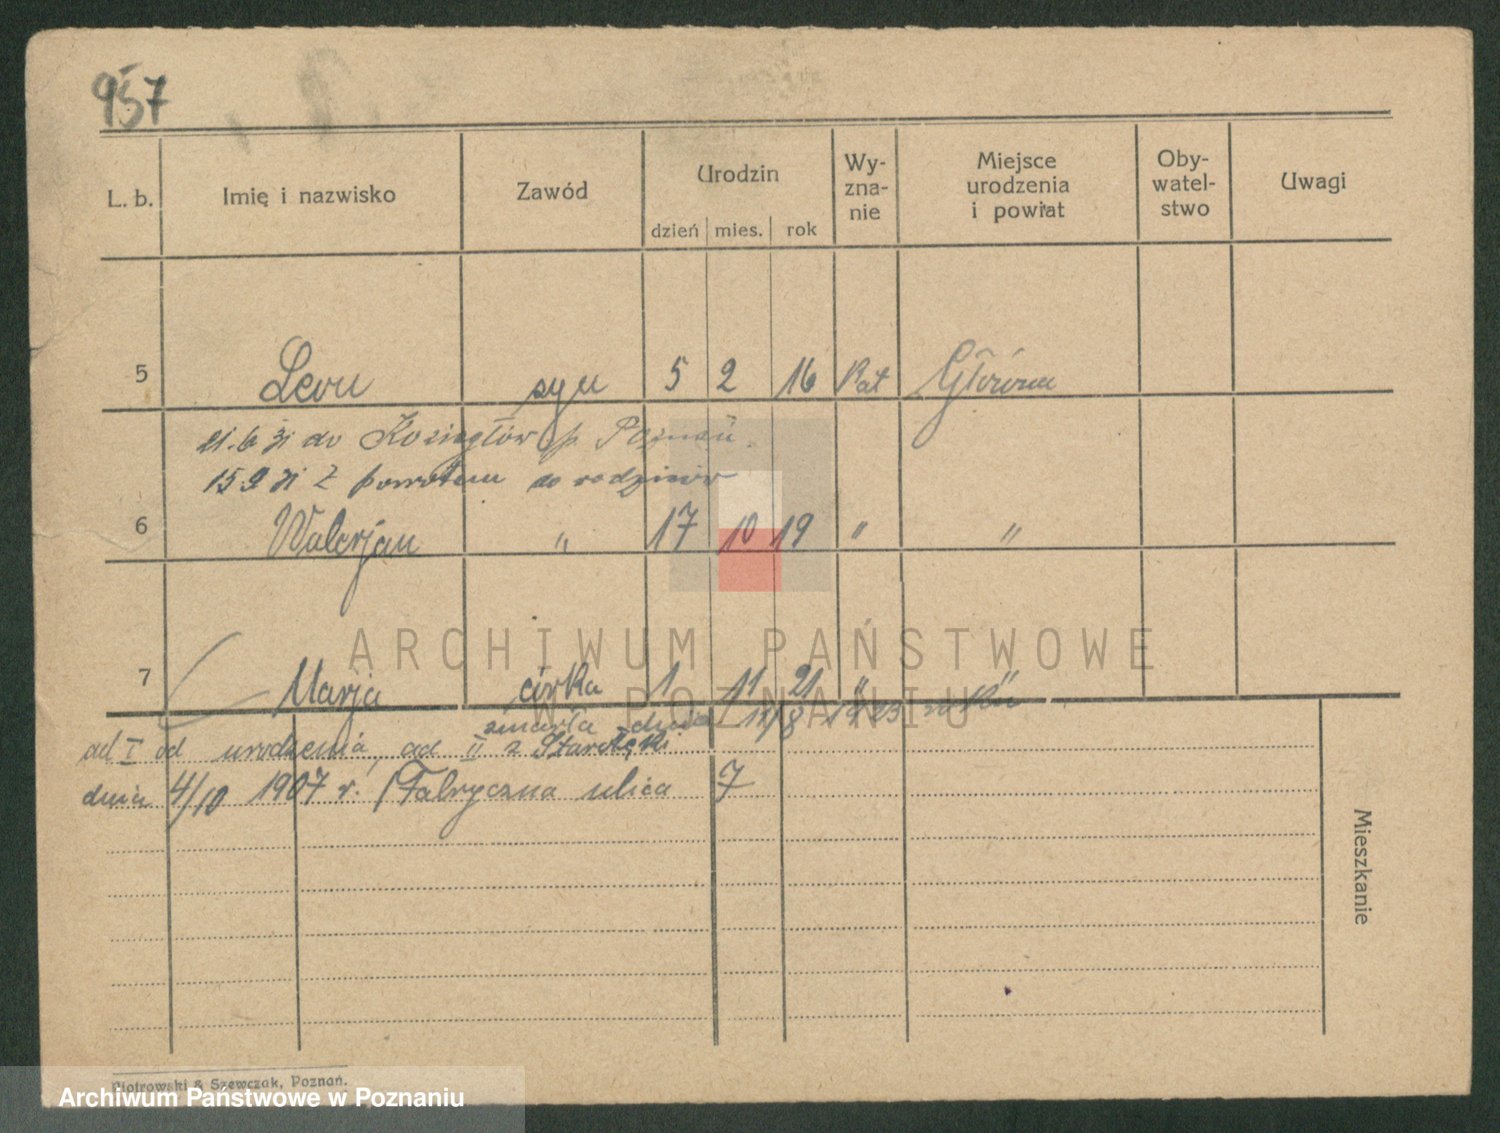 957
L. b. Imię i nazwisko Zawód Urodzin dzień mies. rok Wy-zna-nie Miejsce urodzenia i powiat Oby-watel-stwo Uwagi
5 Leon syn 5 2 16 Kat Główna
21.6 31 do Koziegłów p. Poznań.
15 9 31 z powrotem do rodziców
6 Walerjan " 17 10 19 " "
7 Marja córka 1 11 21 " "
zmarła dnia 18/8 1923 roku
ad I od urodzenia, ad II z Starołęki
dnia 4/10 1907 r. Fabryczna ulica 7
Mieszkanie
Piotrowski & Szewczak, Poznań.
ARCHIWUM PAŃSTWOWE
W POZNANIU
Archiwum Państwowe w Poznaniu